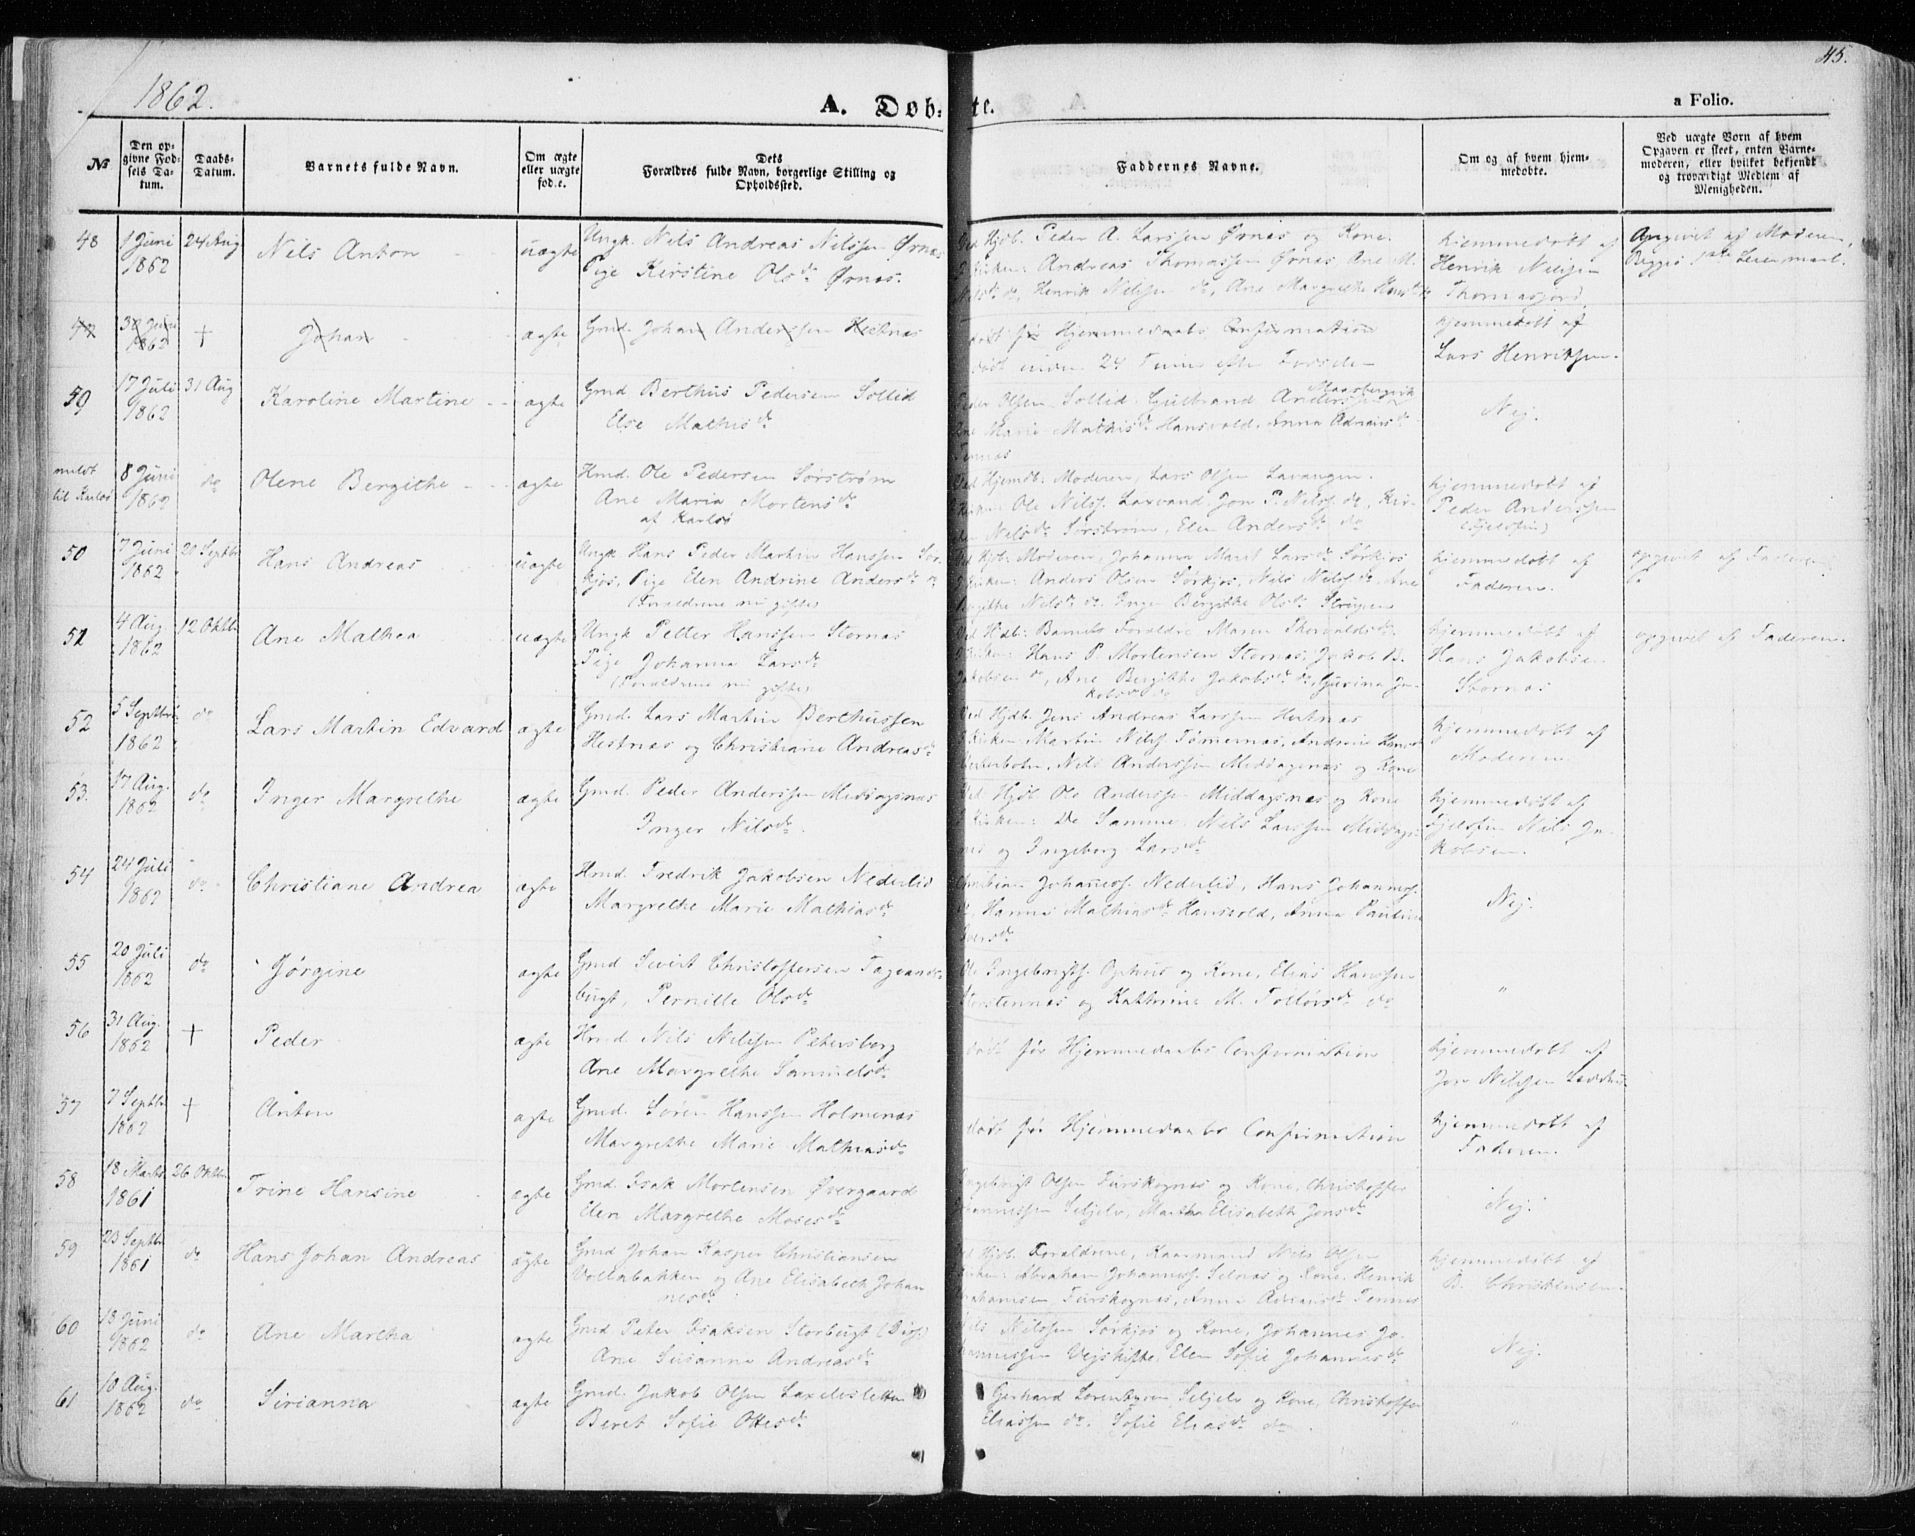 1862.
A. Døb-te.
45.
a Folio.
No
Den opgivne Fødsels Datum.
Daabs-Datum.
Barnets fulde Navn.
Om ægte eller uægte fød.e.
Dets Forældres fulde Navn, borgerlige Stilling og Opholdssted.
Faddernes Navne.
Om og af hvem hjemmedøbte.
Ved uægte Børn af hvem Opgaven er skeet, enten Barnemoderen, eller hvilket bekjendt og troværdigt Medlem af Menigheden.
48 1 Juni 1862 24 Aug Nils Anton uægte
Ungk. Nils Andreas Nilssen Ørnes
Pige Kirstine Olsdr Ørnes.
Ved Hjdb. Peder A. Larssen Ørnes og Kone.
I Kirken: Andreas Thomassen Ørnes Ane M.
Nilsdr do, Henrik Nilssen do, Ane Margrethe Hansdr do
hjemmedøbt af
Henrik Nilssen
Thomasjord.
Angivet af Moderen,
Begges 1ste Leiermaal.
49 30 Juni 1862 + Johan ægte
Gmd. Johan Anderssen Hestnæs
død før Hjemmedaabs Confirmation
født inden 24 Timer efter Fødselen
hjemmedøbt af
Lars Henriksen
59 17 Juli 1862 31 Aug Karoline Martine ægte
Gmd Berthus Pedersen Sollid
Else Mathisdr
Maarbergvik
Peder Olsen Sollid. Gulbrand Anderssen
Ane Marie Mathisdr Hansvold, Anna Adriansdr
Tennes
Nej.
meldt til Karlsø 8 Juni 1862 do Olene Bergithe ægte
Hmd. Ole Pedersen Sørstrøm
Ane Maria Mortensdr
af Karlsø
Ved Hjemdb: Moderen, Lars Olsen Lavangen.
I Kirken: Ole Nilss. Laxvand Jon P. Nilss. do, Kir-
Nilsdr Sørstrøm, Elen Andersdr do
hjemmedøbt af
Peder Anderssen
(Fjelsfin)
50 7 Juni 1862 20 Septbr Hans Andreas uægte
Ungk Hans Peder Martin Hanssen Sør-
kjos, Pige Elen Andrine Andersdr do
(Forældrene nu gifte)
Ved Hjdb: Moderen, Johanna Maret Larsdr Sørkjos
I Kirken: Anders Olsen Sørkjos, Nils Nilss. do, Ane
Bergithe Nilsdr do. Inger Bergitke Olsdr Strupen
hjemmedøbt af
Faderen.
opgivet af Faderen
51 4 Aug 1862 12 Oktbr Ane Mathea uægte
Ungk Petter Hanssen Stornæs
Pige Johanna Larsdr
(Forældrene nu gifte)
Ved Hjdb: Barnets Forældre Maren Thorvaldsdr
I Kirken: Hans P. Mortensen Stornæs, Jakob B.
Jakobsen do, Ane Bergitke Jakobsdr do, Gurina Ja-
kobsdr do
hjemmedøbt af
Hans Jakobsen
Stornæs
opgivet af Faderen.
52 5 Septbr 1862 do Lars Martin Edvard ægte
Gmd. Lars Martin Berthussen
Hestnæs og Christiane Andreasdr
Ved Hjdb. Jens Andreas Larssen Hestnæs
I Kirken: Martin Nilss. Tømernæs, Andrine Hansdr
Nils Anderssen Middagsnæs og Kone
hjemmedøbt af
Moderen
53. 17 Aug. 1862 do Inger Margrethe ægte
Gmd. Peder Anderssen Middagsnæs
Inger Nilsdr.
Ved Hjdb Ole Anderssen Middagsnæs og Kone
I Kirken: De Samme, Nils Larssen Middags-
næs og Ingeborg Larsdr
hjemmedøbt af
Fjelsfin Nils Ja-
kobsen.
54 24 Juli 1862 do Christiane Andrea ægte
Hmd. Fredrik Jakobsen Nederlid
Margrethe Marie Mathiasdr
Christian Johanness. Nederlid, Hans Johanness.
do, Hanna Mathiasdr Hansvold, Anna Pauline
Iversdr
Nej.
55 20 Juli 1862 do Jørgine ægte
Gmd Sivert Christoffersen Tagvands-
bugt, Pernille Olsdr
Ole Ingebrigts. Ophus og Kone, Elias Hanssen
Storstennæs og Kathrine M. Tollevsdr do
"
56 31 Aug. 1862 + Peder ægte
Hmd Nils Nilssen Petersborg
Ane Margrethe Samuelsdr
død før Hjemmedaabs Confirmation
hjemmedøbt af
Jon Nilssen
57 7 Septbr 1862 + Anton ægte
Gmd. Søren Hanssen Holmenæs
Margrethe Marie Mathiasdr
død før Hjemmedaabs Confirmation
hjemmedøbt af
Faderen.
58 18 Marts 1861 26 Oktbr Trine Hansine ægte
Gmd. Isak Mortensen Øvergaard
Elen Margrethe Mosesdr
Ingebrigt Olsen Furskognæs og Kone, Christoffer
Johannessen Seljelv, Martha Elisabeth Jonsdr
Nej.
59 23 Septbr 1861 do Hans Johan Andreas ægte
Gmd Johan Kasper Christiansen
Vollabakken og Ane Elisabeth Johan
nesdr
Ved Hjdb. Forældrene, Kaarmand Nils Olsen
I Kirken: Abraham Johanness. Selnæs og Kone, Henrik
Abrahamsen Furskognæs, Anna Adriansdr Tennes
hjemmedøbt af
B. Christensen
60 13 Juni 1862 do Ane Martha ægte
Gmd Peter Isaksen Storbugt
Ane Susanna Andreasdr
Nils Nilssen Sørkjos og Kone, Johannes Jo-
hannessen Vejskifte, Elen Sofie Johannesdr
Nej.
61 10 Aug. 1862 do Sirianna ægte
Gmd. Jakob Olsen Laxelvsletten
Beret Sofie Ottesdr
Gerhard Lorentzen Seljelv og Kone, Christoffer
Eliassen do. Sofie Eliasdr do.
"